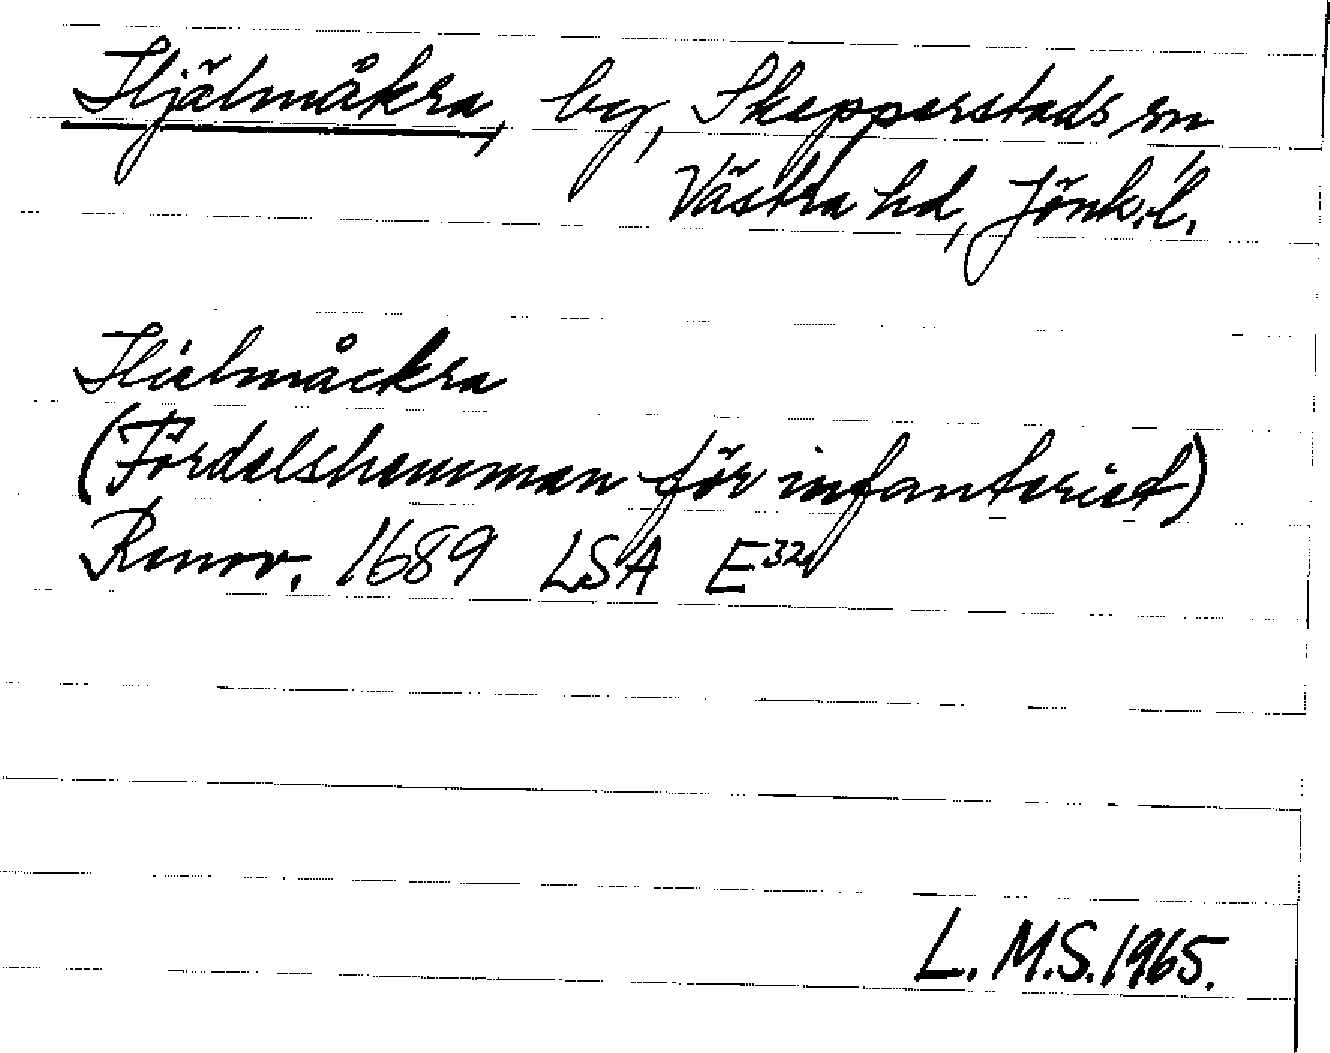 Hjälmåkra, by, Skepperstads sn
Västra hd, Jönk. l.
Hielmåckra
(Fördelshemman för infanteriet)
Renov. 1689 LSA E32
L. M.S. 1965.